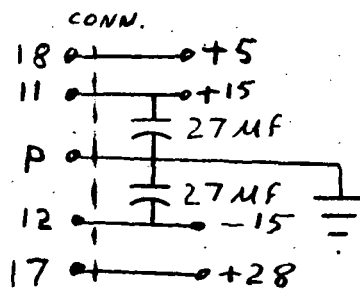 CONN.
18 +5
11 +15
27 MF
P
27 MF
12 -15
17 +28